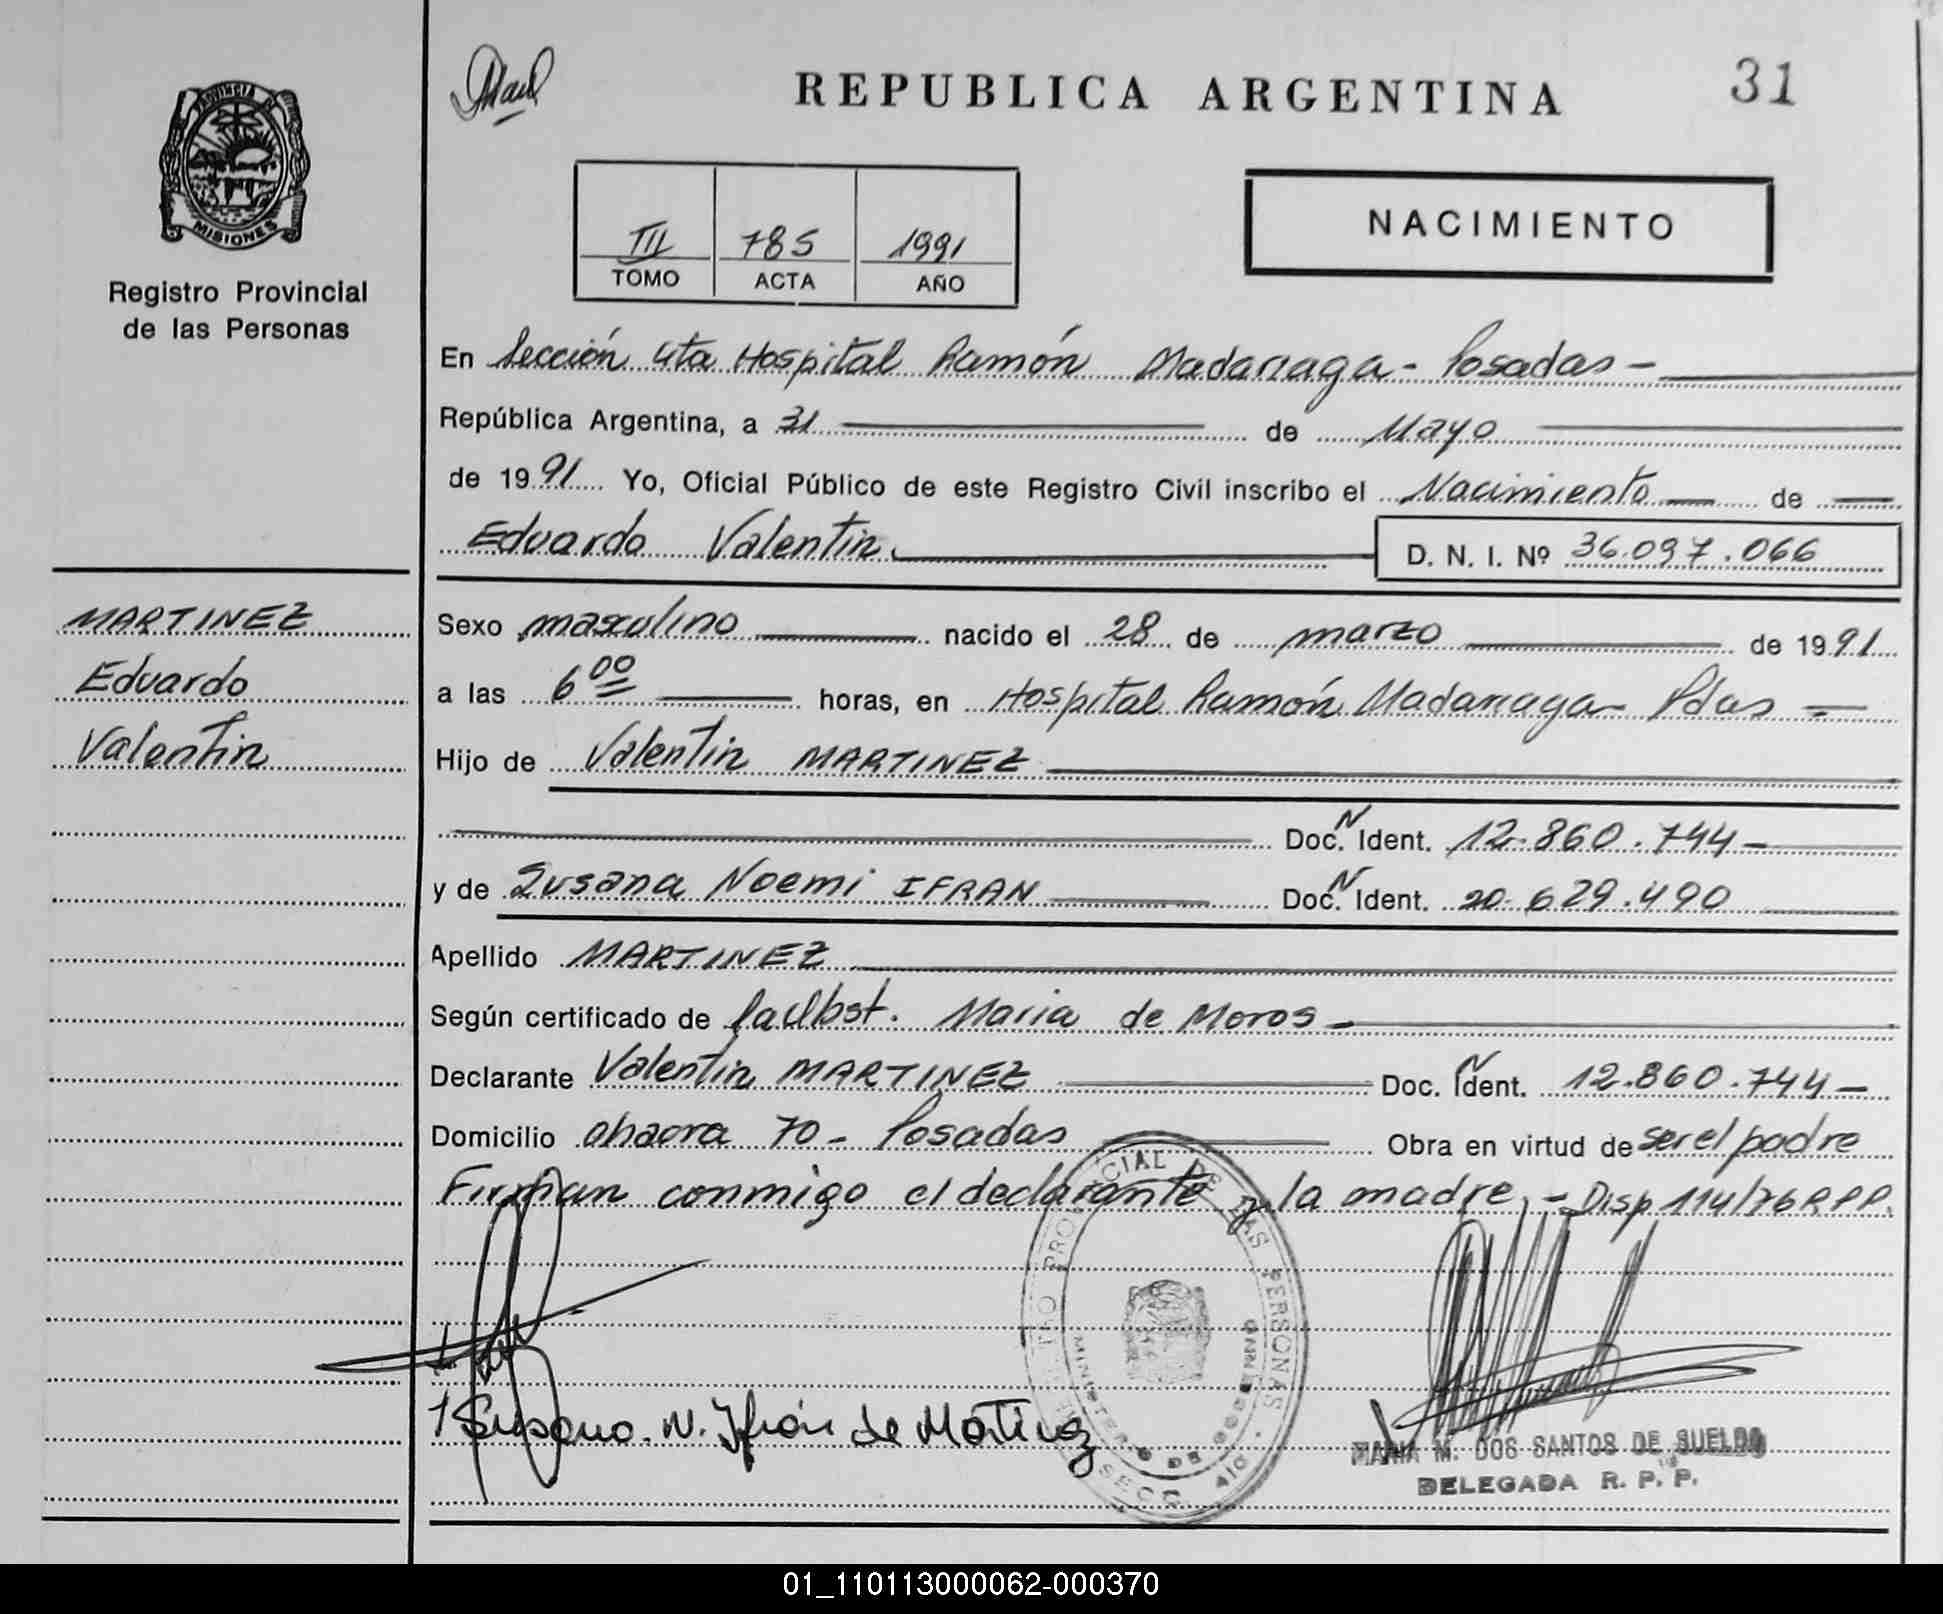 PROVINCIA DE
MISIONES
Registro Provincial
de las Personas
MARTINEZ
Eduardo
Valentin
REPUBLICA ARGENTINA
31
III 785 1991
TOMO ACTA AÑO
NACIMIENTO
En Sección 4ta Hospital Ramón Madariaga - Posadas -
República Argentina, a 31 de Mayo
de 1991 Yo, Oficial Público de este Registro Civil inscribo el Nacimiento de
Eduardo Valentin D. N. I. Nº 36.097.066
Sexo masculino nacido el 28 de marzo de 1991
a las 6 00 horas, en Hospital Ramón Madariaga Pdas
Hijo de Valentin MARTINEZ
Doc. N Ident. 12.860.744
y de Susana Noemi IFRAN Doc. N Ident. 20.629.490
Apellido MARTINEZ
Según certificado de Maria de Moros
Declarante Valentin MARTINEZ Doc. N Ident. 12.860.744
Domicilio chacra 70 - Posadas Obra en virtud de ser el padre
Firman conmigo el declarante y la madre, - Disp 114/76 R.P.P.
Susana. N. Ifrán de Martinez
MARIA M. DOS SANTOS DE SUELDO
DELEGADA R. P. P.
01_110113000062-000370